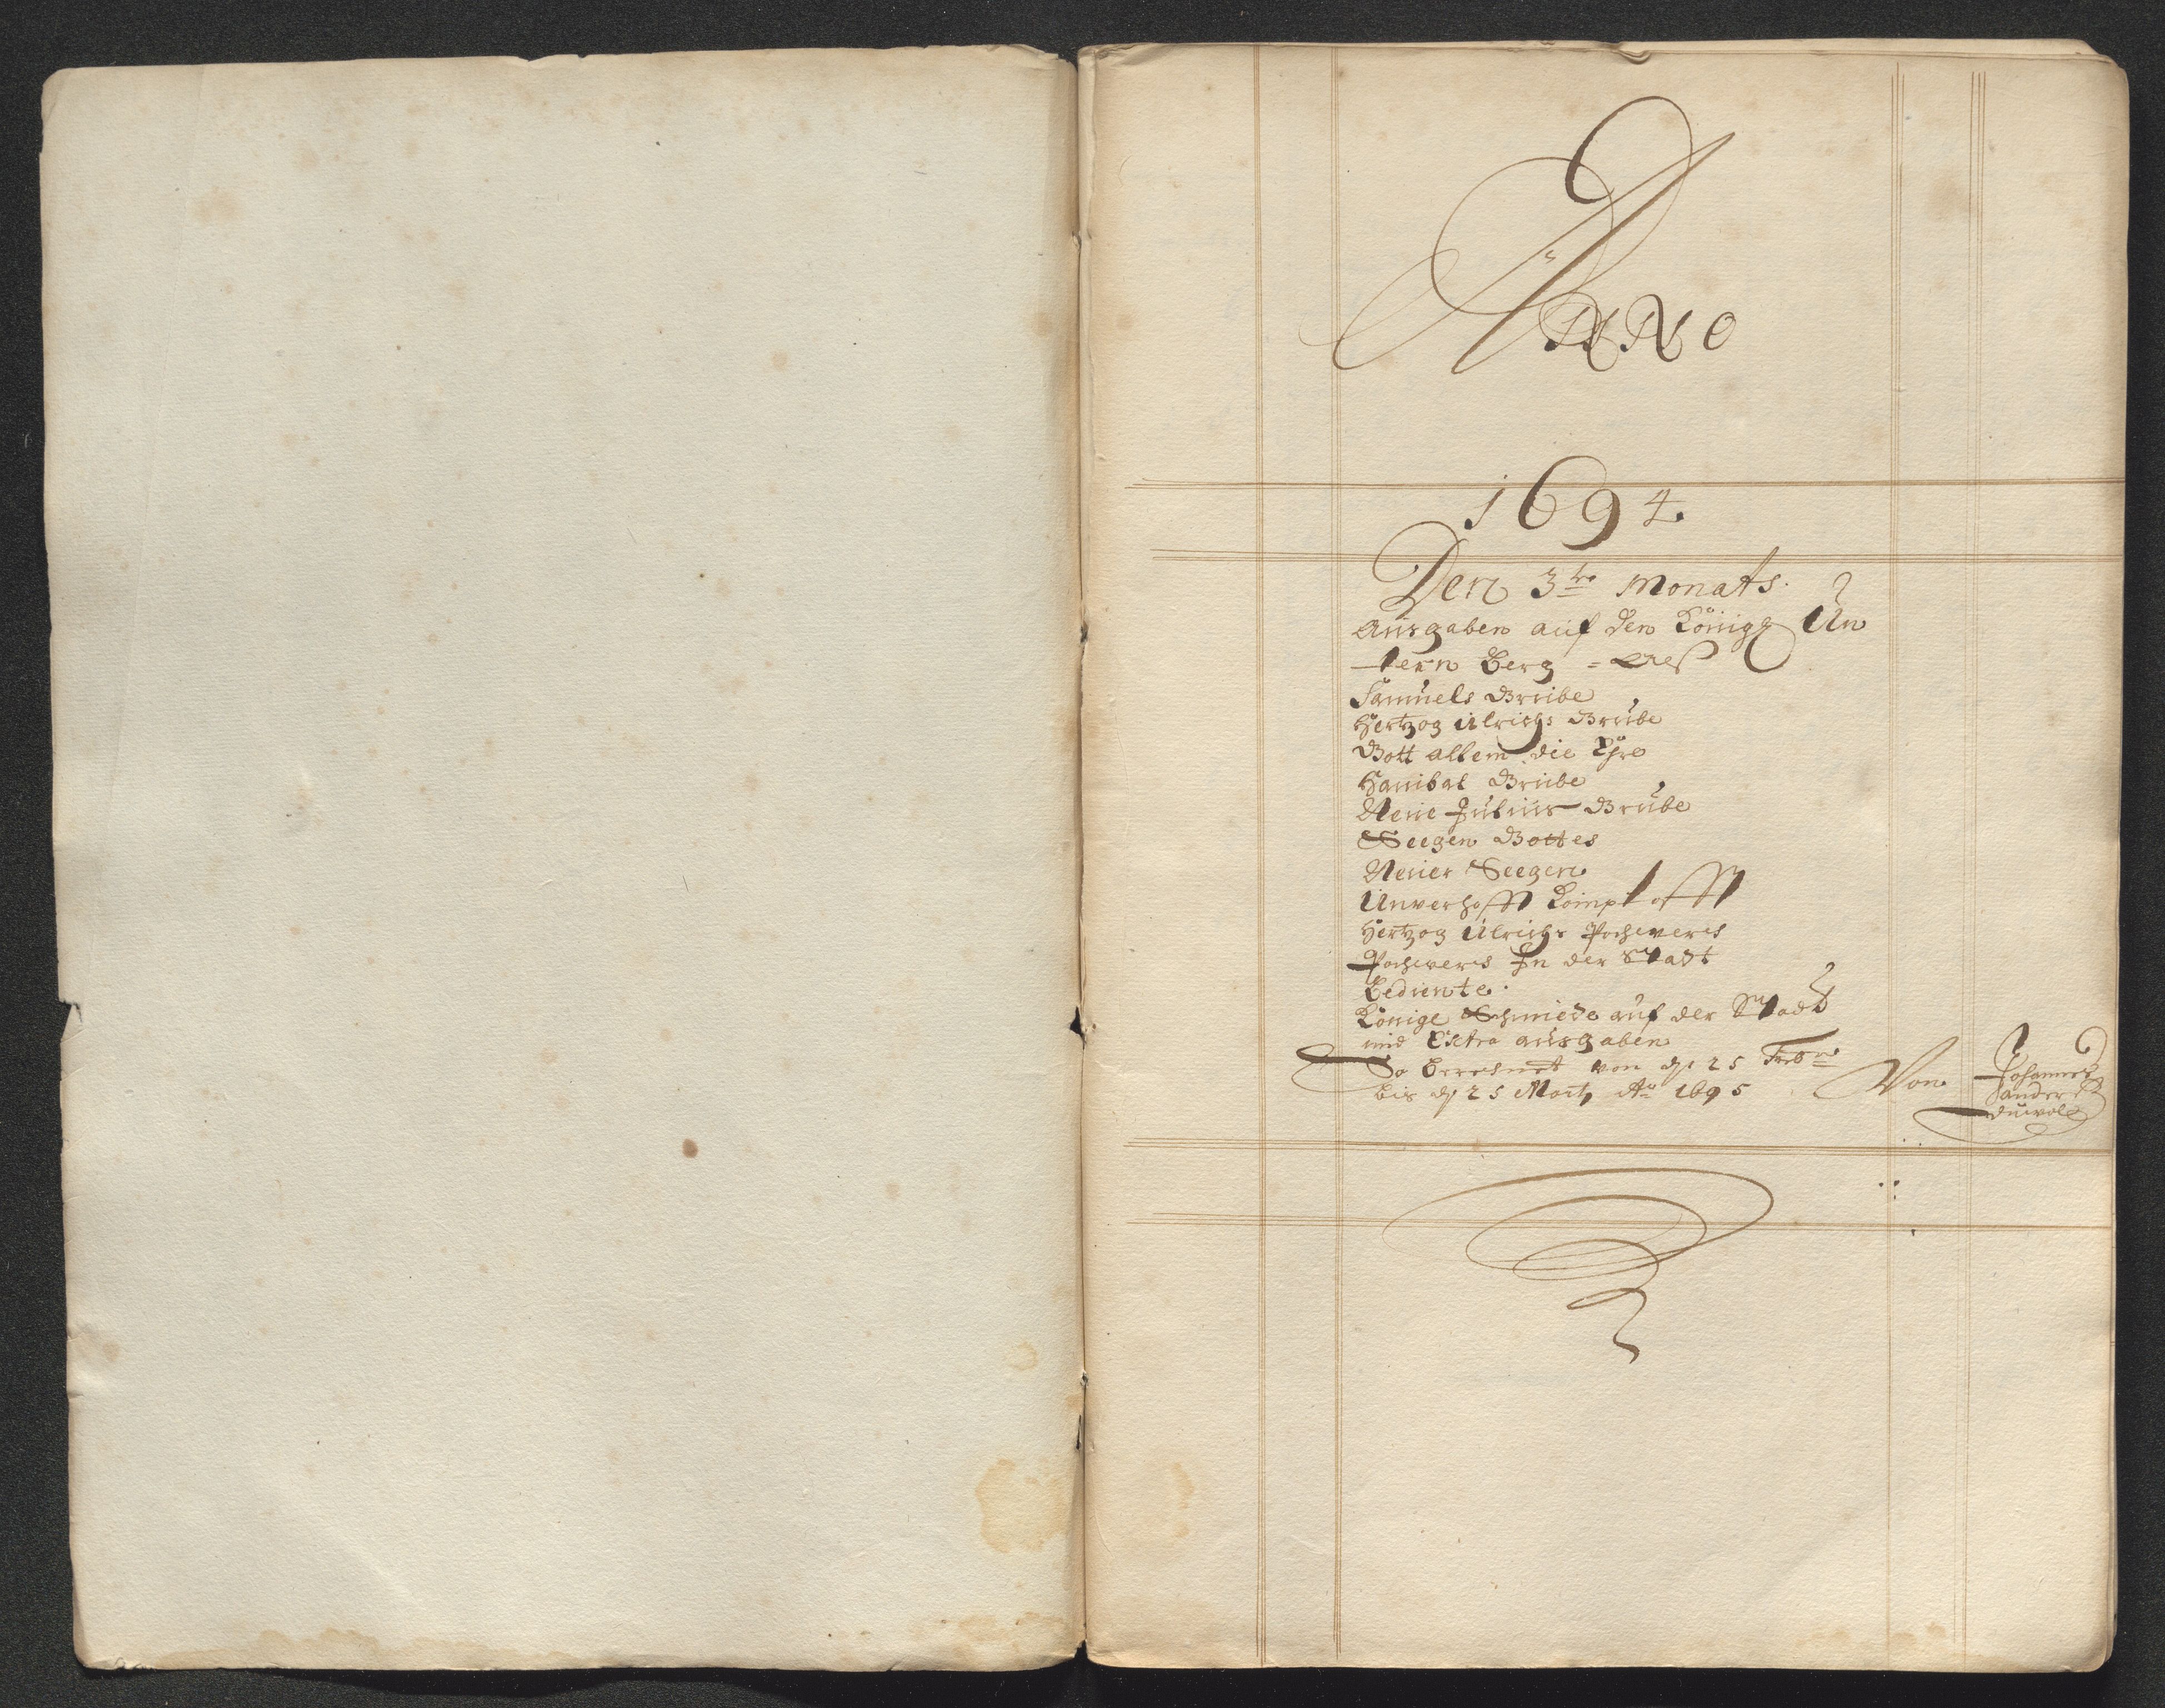 ANNO
1694.
Den 3te Monats.
Ausgaben auf den Königg Un
tern Berg =
Samuels Grube
Hertzog Ulrichs Grube
Gott allein die Ehre
Hanibal Grube
Neue Julius Grube
Seegen Gottes
Neuer Seegen
Unverhofft Kömpt offt
Hertzog Ulrichs Pochwerck
Pochwerck In der Stadt
Bediente.
Könige Schmiede auf der Stadt
und Extra ausgaben
So berechnet von d 25 Feb
bis d 25 Marty Ao 1695
Von Johannes
Sander